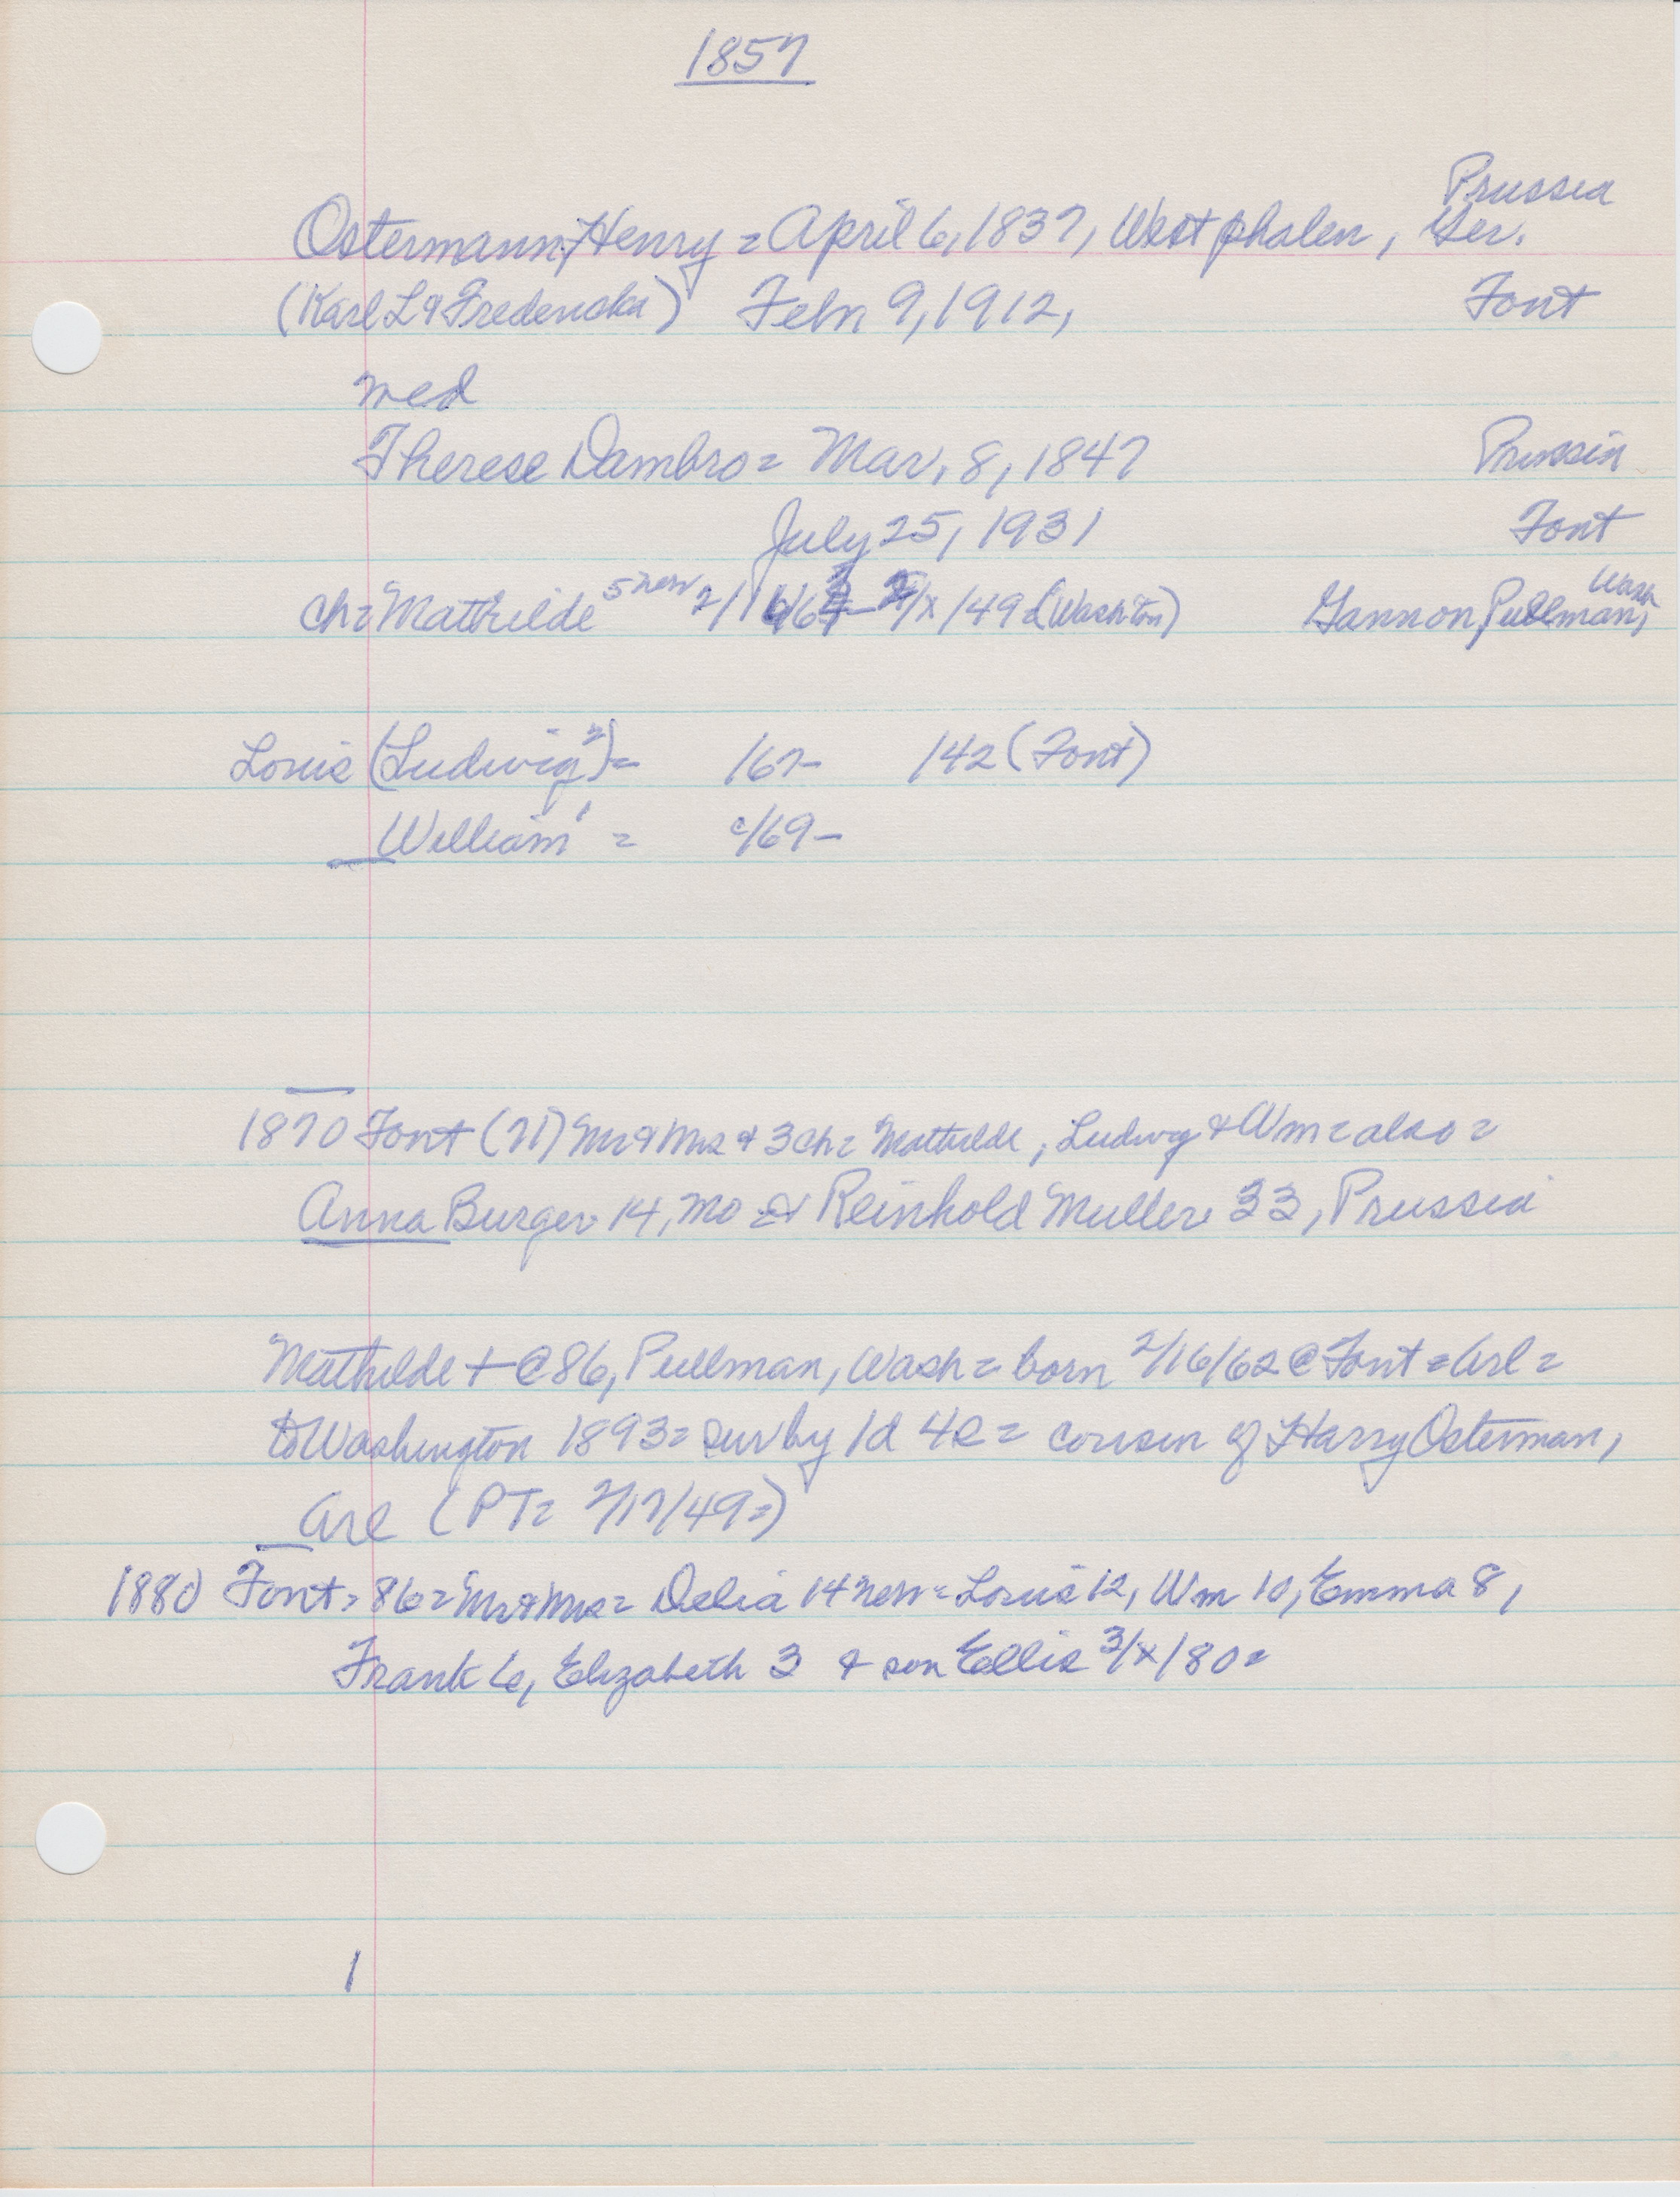 1857
Prussia
Ostermann, Henry = April 6, 1837, Westphalen, Ger.
(Karl L & Fredericka) Febr 9, 1912, Font
med
Therese Dambro = Mar, 8, 1847 Prussia
July 25, 1931 Font
ch = Mathilde 5 new 2/16/63 /x/49 = (Washiton) Gannon, Pullman, Wash
Louis (Ludwig 2) = /67- /42 (Font)
William 1 = c/69-
1870 Font (71) Mr & Mrs & 3 ch = Mathilde, Ludwig & Wm = also =
Anna Burger 14, Mo & Reinhold Muller 33, Prussia
Mathilde + @ 86, Pullman, Wash = born 2/16/62 @ Font = Arl =
to Washington 1893 = sur by 1d 4s = cousin of Harry Osterman,
Arl (PT = 2/17/49 =)
1880 Font = 86 = Mr & Mrs = Delia 14 new = Louis 12, Wm 10, Emma 8,
Frank 6, Elizabeth 3 & son Ellis 3/x/80 =
1